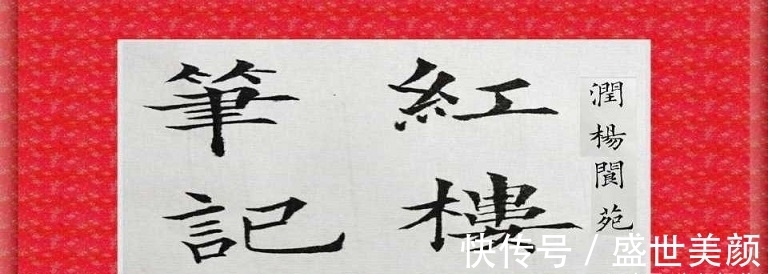 潤楊閬苑
紅樓
筆記
快传号 / 盛世美颜